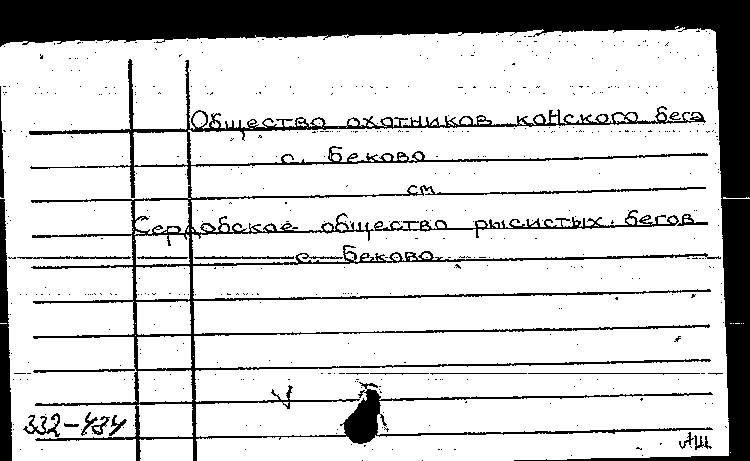 Общество охотников конского бега
с. Беково
см.
Сердобское общество рысистых бегов
с. Беково
332-434
АШ